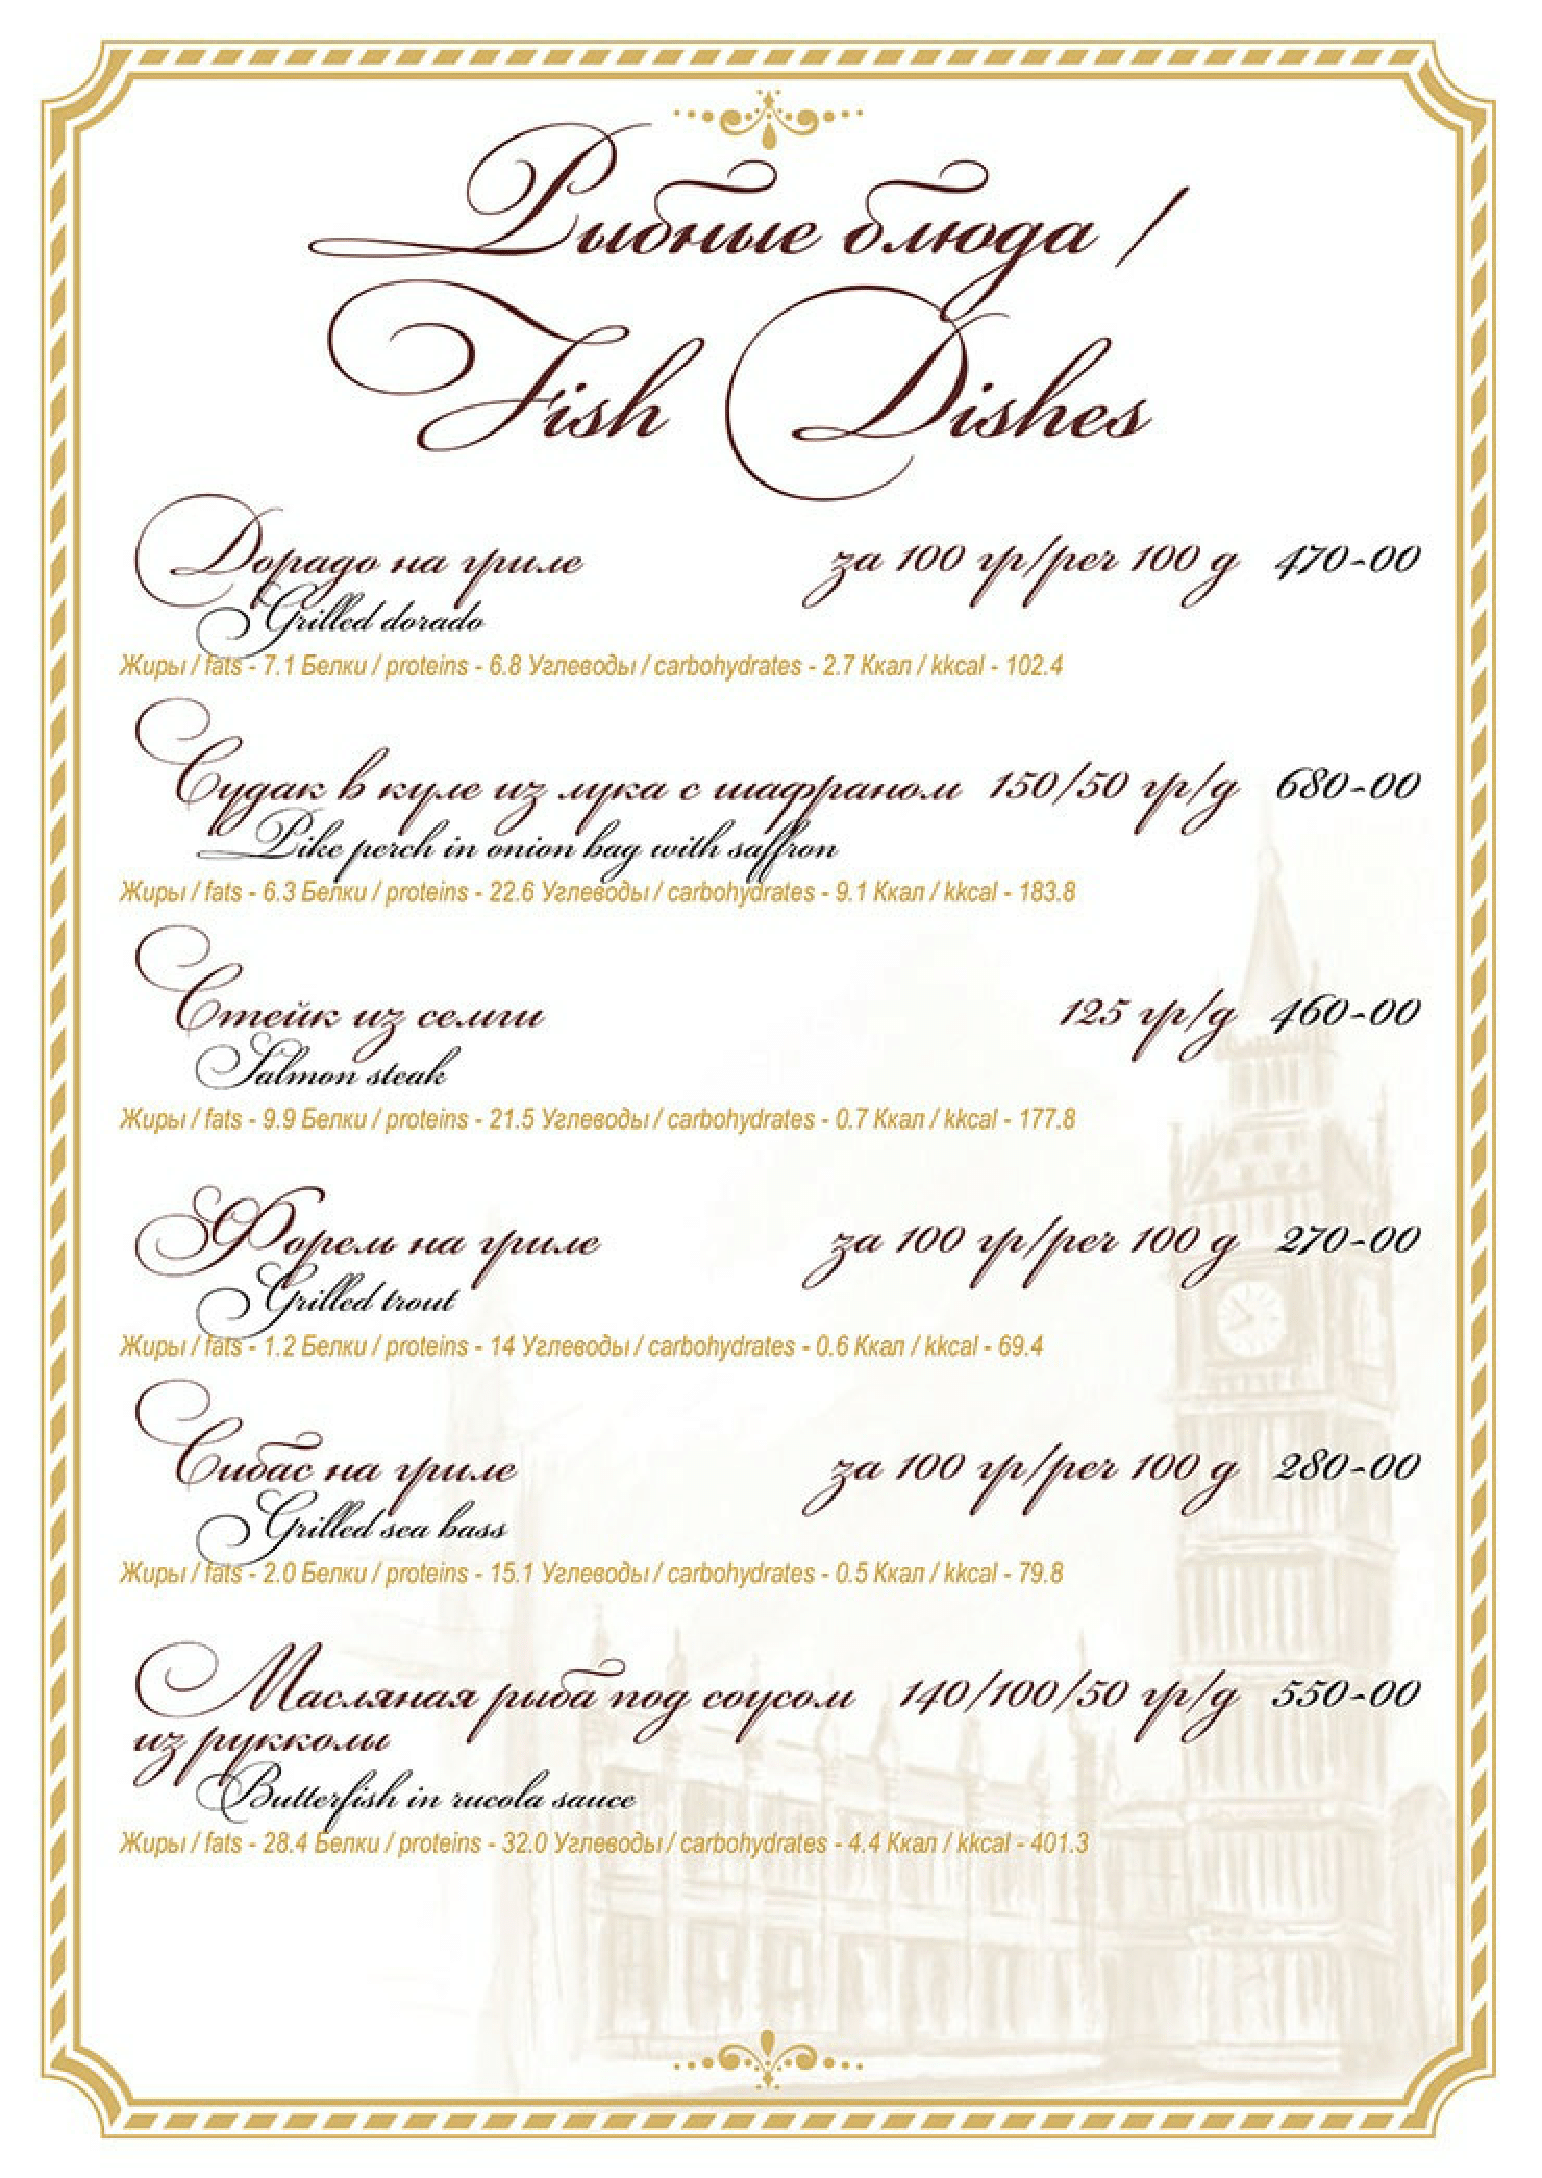 Рыбные блюда /
Fish Dishes
Дорадо на гриле за 100 гр/per 100 g 470-00
Grilled dorado
Жиры / fats - 7.1 Белки / proteins - 6.8 Углеводы / carbohydrates - 2.7 Ккал / kkcal - 102.4
Судак в куле из лука с шафраном 150/50 гр/g 680-00
Pike perch in onion bag with saffron
Жиры / fats - 6.3 Белки / proteins - 22.6 Углеводы / carbohydrates - 9.1 Ккал / kkcal - 183.8
Стейк из семги 125 гр/g 460-00
Salmon steak
Жиры / fats - 9.9 Белки / proteins - 21.5 Углеводы / carbohydrates - 0.7 Ккал / kkcal - 177.8
Форель на гриле за 100 гр/per 100 g 270-00
Grilled trout
Жиры / fats - 1.2 Белки / proteins - 14 Углеводы / carbohydrates - 0.6 Ккал / kkcal - 69.4
Сибас на гриле за 100 гр/per 100 g 280-00
Grilled sea bass
Жиры / fats - 2.0 Белки / proteins - 15.1 Углеводы / carbohydrates - 0.5 Ккал / kkcal - 79.8
Масляная рыба под соусом 140/100/50 гр/g 550-00
из рукколы
Butterfish in rucola sauce
Жиры / fats - 28.4 Белки / proteins - 32.0 Углеводы / carbohydrates - 4.4 Ккал / kkcal - 401.3